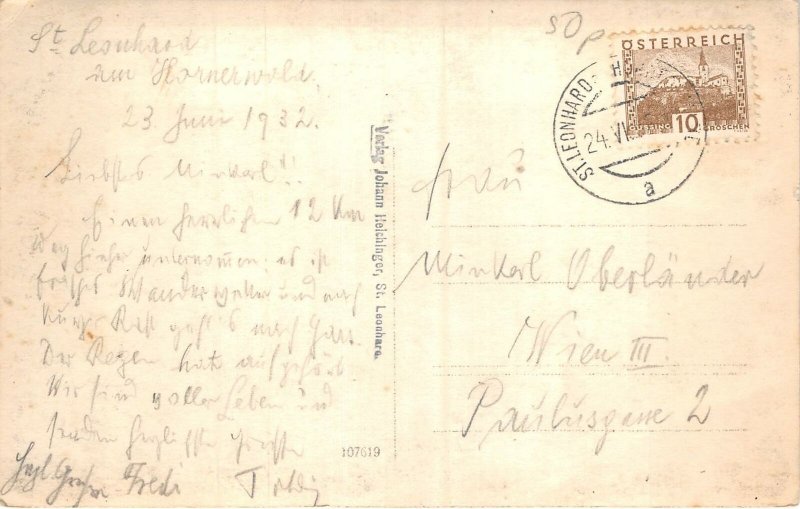 St. Leonhard
am Hornerwald,
23. Juni 1932.
Liebstes Minkerl!!
Einen herrlichen 12 Km
Weg hieher unternommen. es ist
Wanderwetter und nach
kurzer Rast geht's nach Gars.
Der Regen hat aufgehört
Wir sind voller Leben und
senden herzlichste Grüße
Fredi
Verlag Johann Heichinger, St. Leonhard.
107619
50
ÖSTERREICH
GÜSSING 10 GROSCHEN
ST. LEONHARD
24.VI
a
Frau
Minkerl Oberländer
Wien III.
Paulusgasse 2